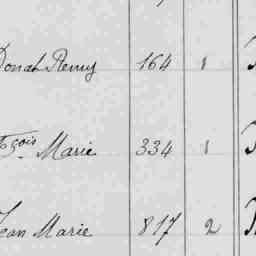 Donat Remy 164 1
Fçois Marie 334 1
Jean Marie 817 2